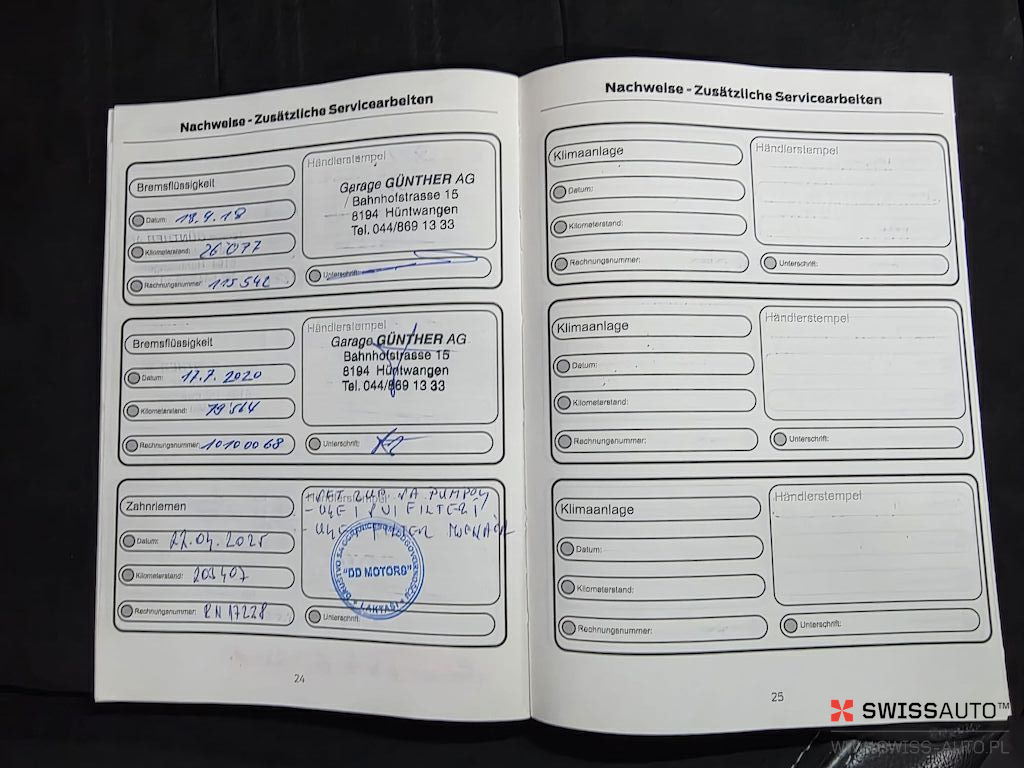 Nachweise - Zusätzliche Servicearbeiten
Bremsflüssigkeit
Datum: 18.9.18
Kilometerstand: 26 077
Rechnungsnummer: 115 542
Händlerstempel
Garage GÜNTHER AG
Bahnhofstrasse 15
8194 Hüntwangen
Tel. 044/869 13 33
Unterschrift:
Bremsflüssigkeit
Datum: 17.7.2020
Kilometerstand: 79 564
Rechnungsnummer: 10100068
Händlerstempel
Garage GÜNTHER AG
Bahnhofstrasse 15
8194 Hüntwangen
Tel. 044/869 13 33
Unterschrift:
Zahnriemen
Datum: 22.04.2025
Kilometerstand: 203407
Rechnungsnummer: RN 17228
Händlerstempel
SET ZUP. NA PUMPOM
- ULJE I SVI FILTERI
- ULJE I FILTER
"DD MOTORS"
LAKTAŠI
Unterschrift:
24
Nachweise - Zusätzliche Servicearbeiten
Klimaanlage
Datum:
Kilometerstand:
Rechnungsnummer:
Händlerstempel
Unterschrift:
Klimaanlage
Datum:
Kilometerstand:
Rechnungsnummer:
Händlerstempel
Unterschrift:
Klimaanlage
Datum:
Kilometerstand:
Rechnungsnummer:
Händlerstempel
Unterschrift:
25
SWISSAUTO™
WWW.SWISS-AUTO.PL